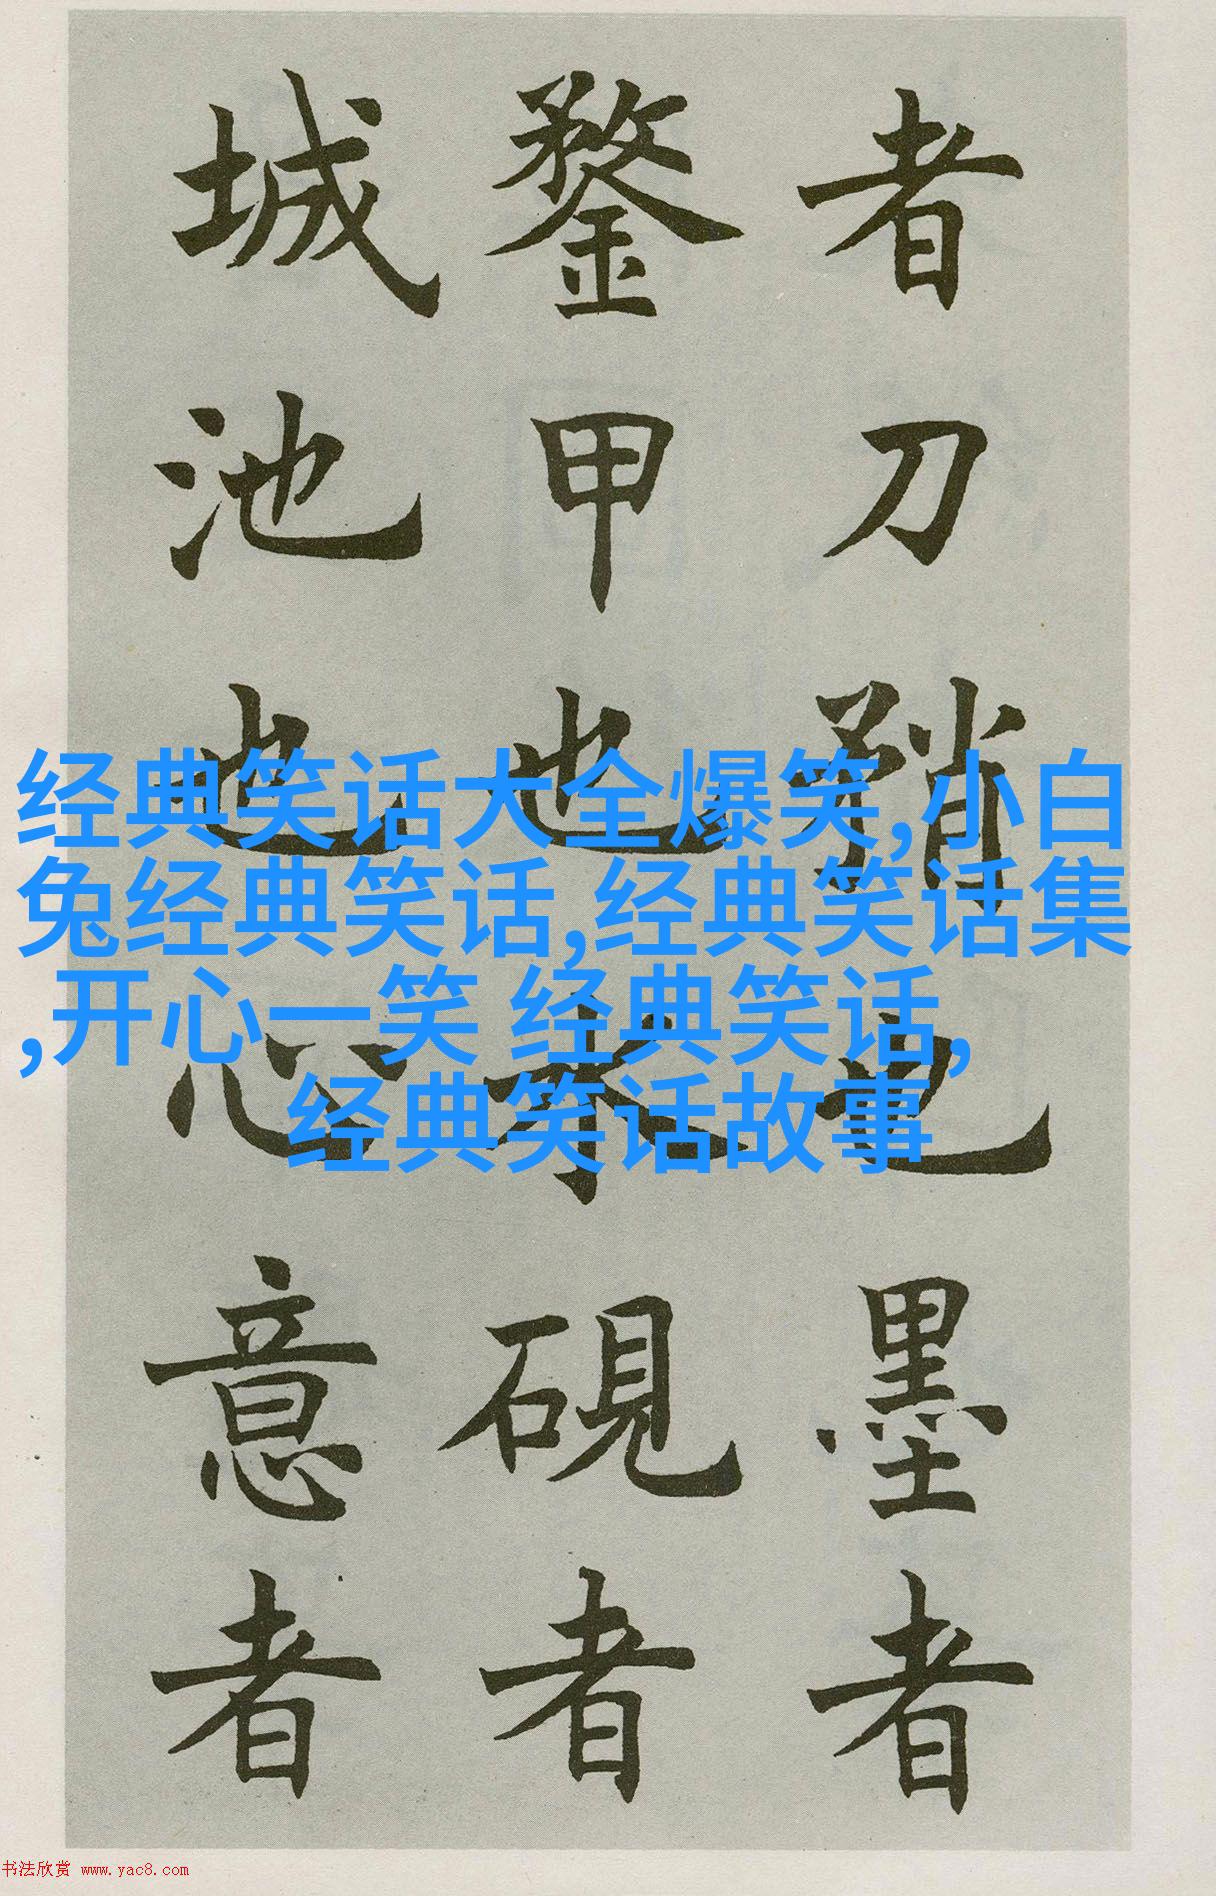 者刀矟也墨者
鍪甲也水硯者
城池也心意者
经典笑话大全爆笑,小白
兔经典笑话,经典笑话集
,开心一笑 经典笑话,
经典笑话故事
书法欣赏 www.yac8.com